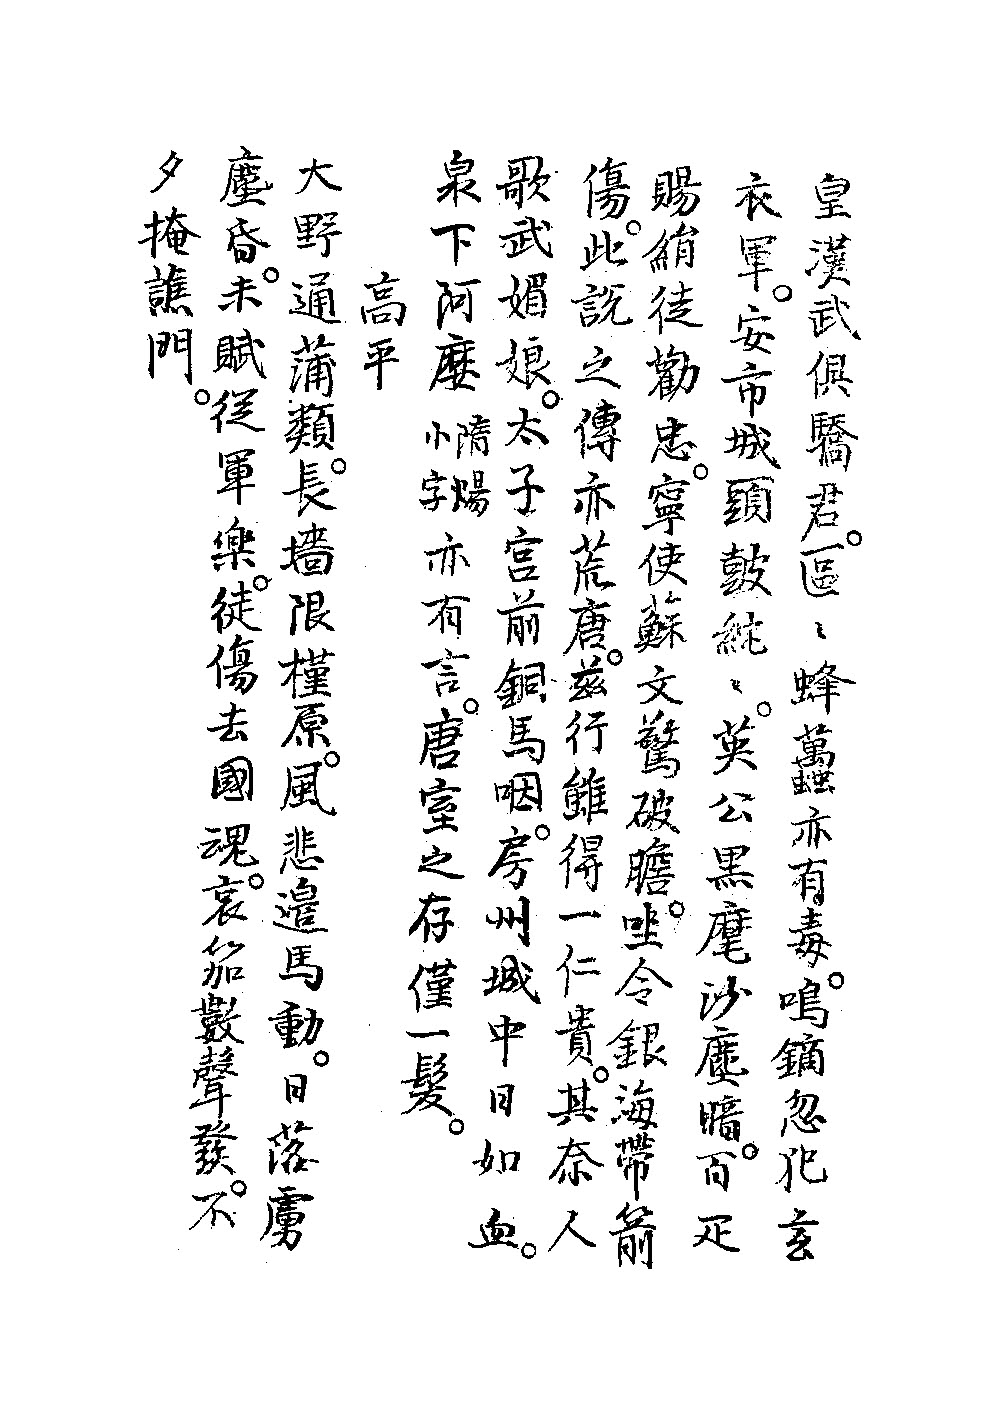 皇漢武俱驕君。區〻蜂蠆亦有毒。鳴鏑忽犯玄
衣軍。安市城頭鼓紞〻。英公黑麾沙塵暗。百疋
賜絹徒勸忠。寧使蘇文驚破膽。坐令銀海帶箭
傷。此說之傳亦荒唐。玆行雖得一仁貴。其奈人
歌武媚娘。太子宮前銅馬咽。房州城中日如血。
泉下阿麼隋煬小字亦有言。唐室之存僅一髮。
高平
大野通蒲類。長墻限槿原。風悲邉馬動。日落虜
塵昏。未賦從軍樂。徒傷去國魂。哀笳數聲發。不
夕掩譙門。